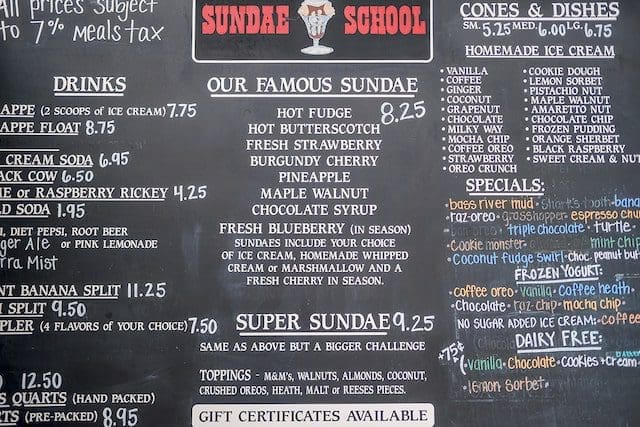 All prices subject
to 7% meals tax
SUNDAE SCHOOL
DRINKS
APPE (2 SCOOPS OF ICE CREAM) 7.75
APPE FLOAT 8.75
CREAM SODA 6.95
ACK COW 6.50
ME or RASPBERRY RICKEY 4.25
LD SODA 1.95
I, DIET PEPSI, ROOT BEER
ger Ale or PINK LEMONADE
rra Mist
NT BANANA SPLIT 11.25
SPLIT 9.50
PLER (4 FLAVORS OF YOUR CHOICE) 7.50
12.50
S QUARTS (HAND PACKED)
RTS (PRE-PACKED) 8.95
OUR FAMOUS SUNDAE
HOT FUDGE 8.25
HOT BUTTERSCOTCH
FRESH STRAWBERRY
BURGUNDY CHERRY
PINEAPPLE
MAPLE WALNUT
CHOCOLATE SYRUP
FRESH BLUEBERRY (IN SEASON)
SUNDAES INCLUDE YOUR CHOICE
OF ICE CREAM, HOMEMADE WHIPPED
CREAM or MARSHMALLOW AND A
FRESH CHERRY IN SEASON.
SUPER SUNDAE 9.25
SAME AS ABOVE BUT A BIGGER CHALLENGE
TOPPINGS - M&M's, WALNUTS, ALMONDS, COCONUT,
CRUSHED OREOS, HEATH, MALT or REESES PIECES.
GIFT CERTIFICATES AVAILABLE
CONES & DISHES
SM. 5.25 MED. 6.00 LG. 6.75
HOMEMADE ICE CREAM
• VANILLA
• COFFEE
• GINGER
• COCONUT
• GRAPENUT
• CHOCOLATE
• MILKY WAY
• MOCHA CHIP
• COFFEE OREO
• STRAWBERRY
• OREO CRUNCH
• COOKIE DOUGH
• LEMON SORBET
• PISTACHIO NUT
• MAPLE WALNUT
• AMARETTO NUT
• CHOCOLATE CHIP
• FROZEN PUDDING
• ORANGE SHERBET
• BLACK RASPBERRY
• SWEET CREAM & NUT
SPECIALS:
• bass river mud • shark's tooth • bana
• raz-oreo • grasshopper • espresso chu
• triple chocolate • turtle •
• Cookie monster • mint chip
• Coconut fudge swirl • choc. peanut butt
FROZEN YOGURT:
coffee oreo • vanilla • coffee heath •
• Chocolate • raz chip • mocha chip •
NO SUGAR ADDED ICE CREAM: • coffee
DAIRY FREE:
+75¢
• vanilla • Chocolate • cookies + cream
• lemon sorbet •